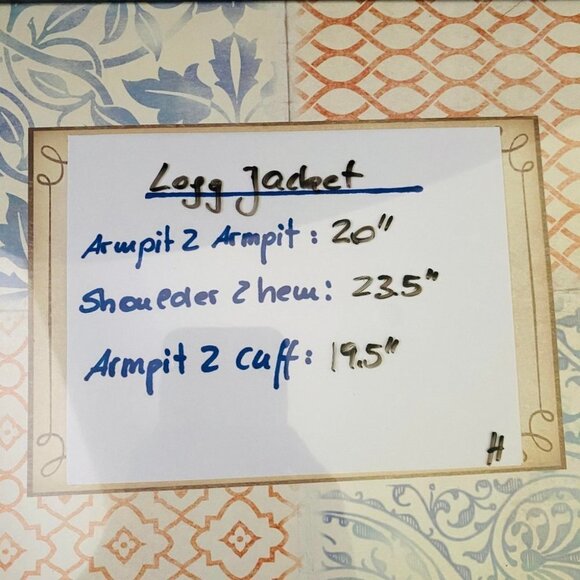 Logg Jacket
Armpit 2 Armpit: 20"
Shoulder 2 hem: 23.5"
Armpit 2 cuff: 19.5"
H